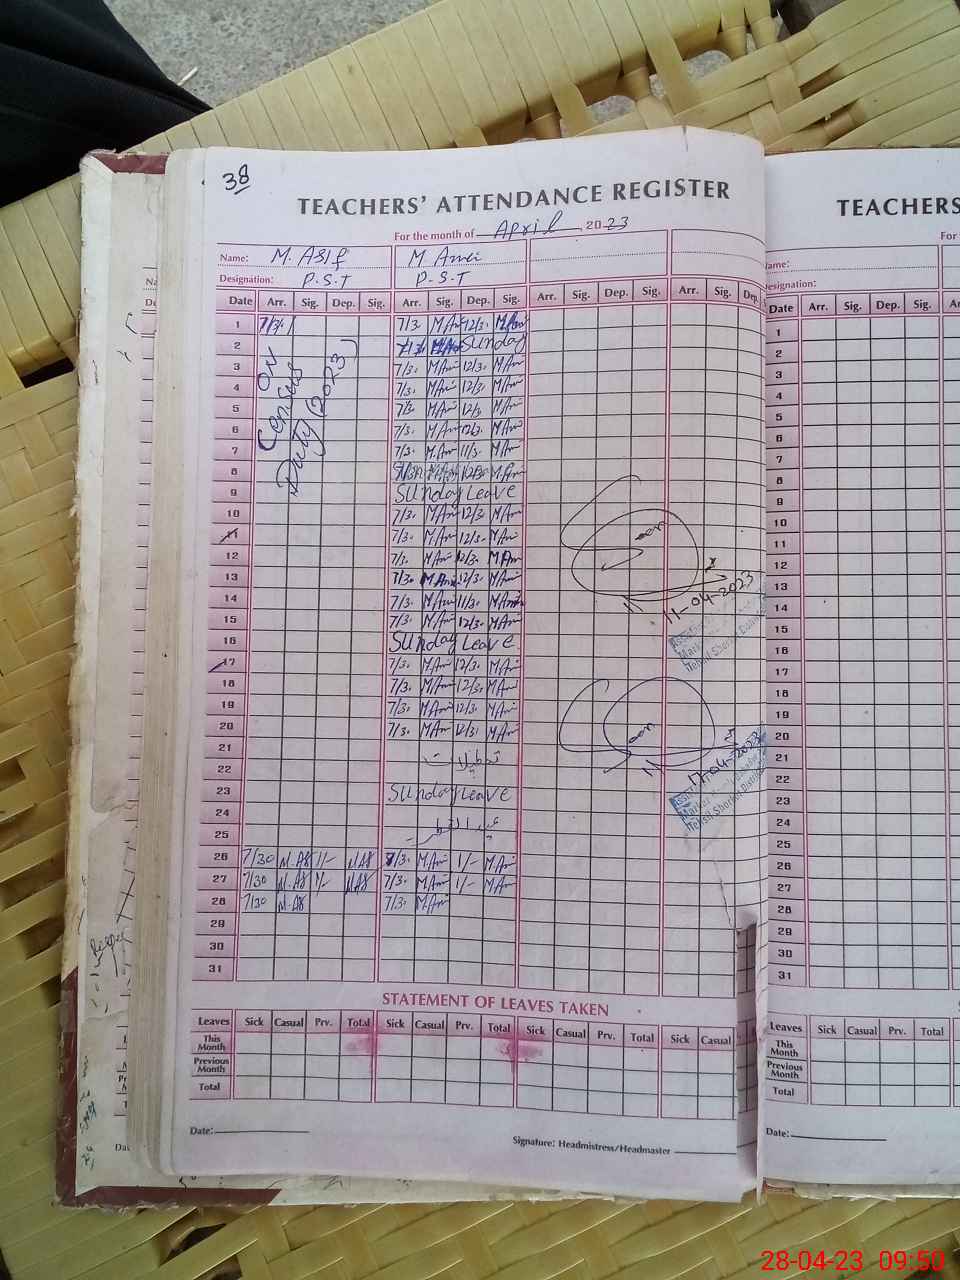 38
TEACHERS' ATTENDANCE REGISTER
For the month of April, 2023
Name: M. Asif M Ami
Designation: P.S.T P-S-T
Date Arr. Sig. Dep. Sig. Arr. Sig. Dep. Sig. Arr. Sig. Dep. Sig. Arr. Sig. Dep.
1 7/3. 7/3. M Ami 12/3. M Ami
2 Sunday
ON
Census
Duty (2023)
3 7/3. M Ami 12/3. M Ami
4 7/3. M Ami 12/3. M Ami
5 7/3. M Ami 12/3. M Ami
6 7/3. M Ami 12/3. M Ami
7 7/3. M Ami 11/3. M Ami
8 M Ami
9 Sunday Leave
10 7/3. M Ami 12/3. M Ami
11 7/3. M Ami 12/3. M Ami
12 7/3. M Ami 12/3. M Ami
13 7/3. M Ami 12/3. M Ami
14 7/3. M Ami 11/3. M Ami
15 7/3. M Ami 12/3. M Ami
16 Sunday Leave
17 7/3. M Ami 12/3. M Ami
18 7/3. M Ami 12/3. M Ami
19 7/3. M Ami 12/3. M Ami
20 7/3. M Ami 12/3. M Ami
21
22
23 Sunday Leave
24
25
26 7/30 M.As 1/- M.As 7/3. M.Ami 1/- M.Ami
27 7/30 M.As 1/- M.As 7/3. M.Ami 1/- M.Ami
28 7/30 M.As 7/3. M.Ami
29
30
31
Seen
11-04-2023
Seen
17-04-2023
STATEMENT OF LEAVES TAKEN
Leaves Sick Casual Prv. Total Sick Casual Prv. Total Sick Casual Prv. Total Sick Casual
This Month
Previous Month
Total
Date:
Signature: Headmistress/Headmaster
TEACHERS
For
Name:
Designation:
Date Arr. Sig. Dep. Sig. Arr.
1
2
3
4
5
6
7
8
9
10
11
12
13
14
15
16
17
18
19
20
21
22
23
24
25
26
27
28
29
30
31
Leaves Sick Casual Prv. Total Sick
This Month
Previous Month
Total
Date:
28-04-23 09:50